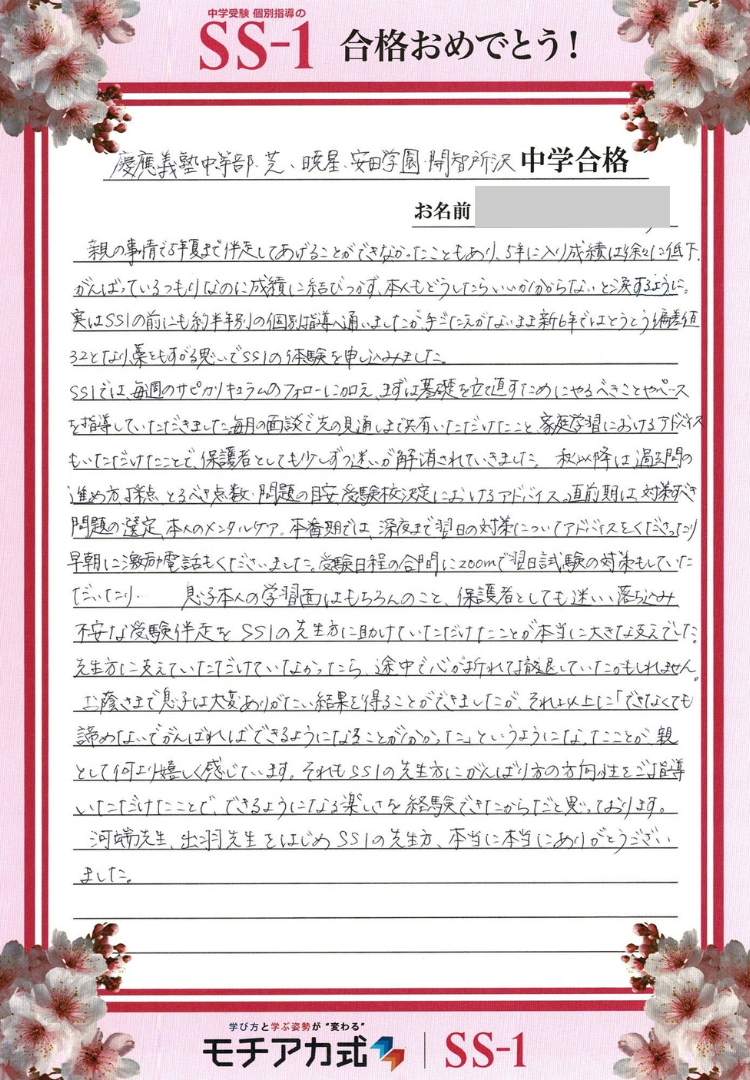 中学受験 個別指導の
SS-1 合格おめでとう!
慶應義塾中等部・芝・暁星・安田学園・開智所沢 中学合格
お名前
親の事情で5年夏まで伴走してあげることができなかったこともあり、5年に入り成績は徐々に低下。
がんばっているつもりなのに成績に結びつかず、本人もどうしたらいいか分からない、と涙するように。
実はSS1の前にも約半年別の個別指導へ通いましたが、手ごたえがないまま新6年ではとうとう偏差値
32となり、藁をもすがる思いでSS1の体験を申し込みました。
SS1では、毎週のサピカリキュラムのフォローに加え、まずは基礎を立て直すためにやるべきことやペース
を指導していただきました。毎月の面談で先の見通しまで共有いただけたこと、家庭学習におけるアドバイス
もいただけたことで、保護者としても少しずつ迷いが解消されていきました。秋以降は過去問の
進め方、採点、とるべき点数・問題の目安、受験校決定におけるアドバイス。直前期は、対策すべき
問題の選定、本人のメンタルケア。本番期では、深夜まで翌日の対策についてアドバイスをくださったり
早朝に激励電話もくださいました。受験日程の合間にzoomで翌日試験の対策もしていた
だいたり… 息子本人の学習面はもちろんのこと、保護者としても迷い、落ち込み
不安な受験伴走をSS1の先生方に助けていただけたことが本当に大きな支えでした。
先生方に支えていただけていなかったら、途中で心が折れて敗退していたかもしれません。
お蔭さまで息子は大変ありがたい結果を得ることができましたが、それ以上に「できなくても
諦めないでがんばればできるようになることが分かった」というようになったことが、親
として何より嬉しく感じています。それもSS1の先生方にがんばり方の方向性をご指導
いただけたことで、できるようになる楽しさを経験できたからだと思っております。
河端先生、出羽先生をはじめSS1の先生方、本当に本当にありがとうござい
ました。
学び方と学ぶ姿勢が“変わる”
モチアカ式 SS-1